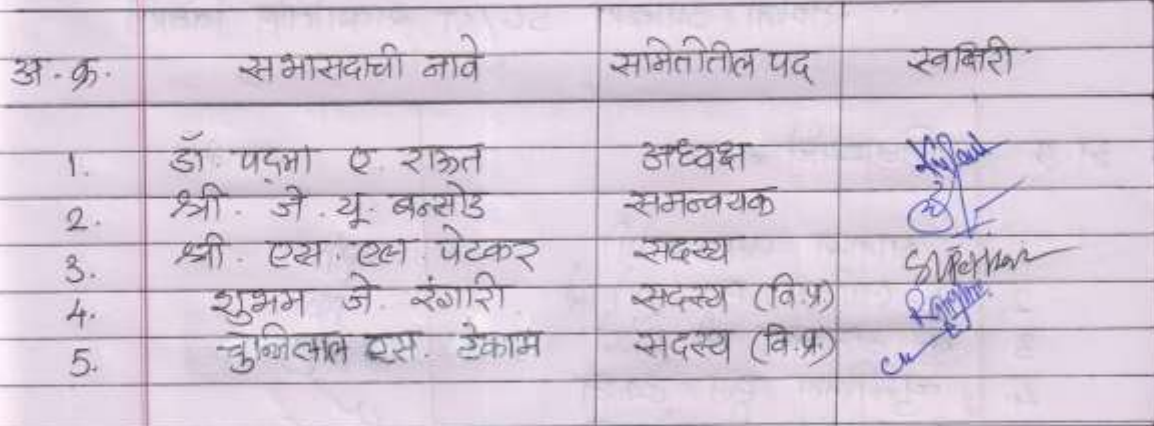 अ. क्र. सभासदाची नावे समितीतील पद स्वाक्षिरी
1. डॉ. पद्मा ए. राऊत अध्यक्ष
2. श्री. जे. यू. बन्सोड समन्वयक
3. श्री. एस. एल पेटकर सदस्य
4. शुभम जे. रंगारी सदस्य (वि.प्र)
5. चुन्निलाल एस. टेकाम सदस्य (वि.प्र)